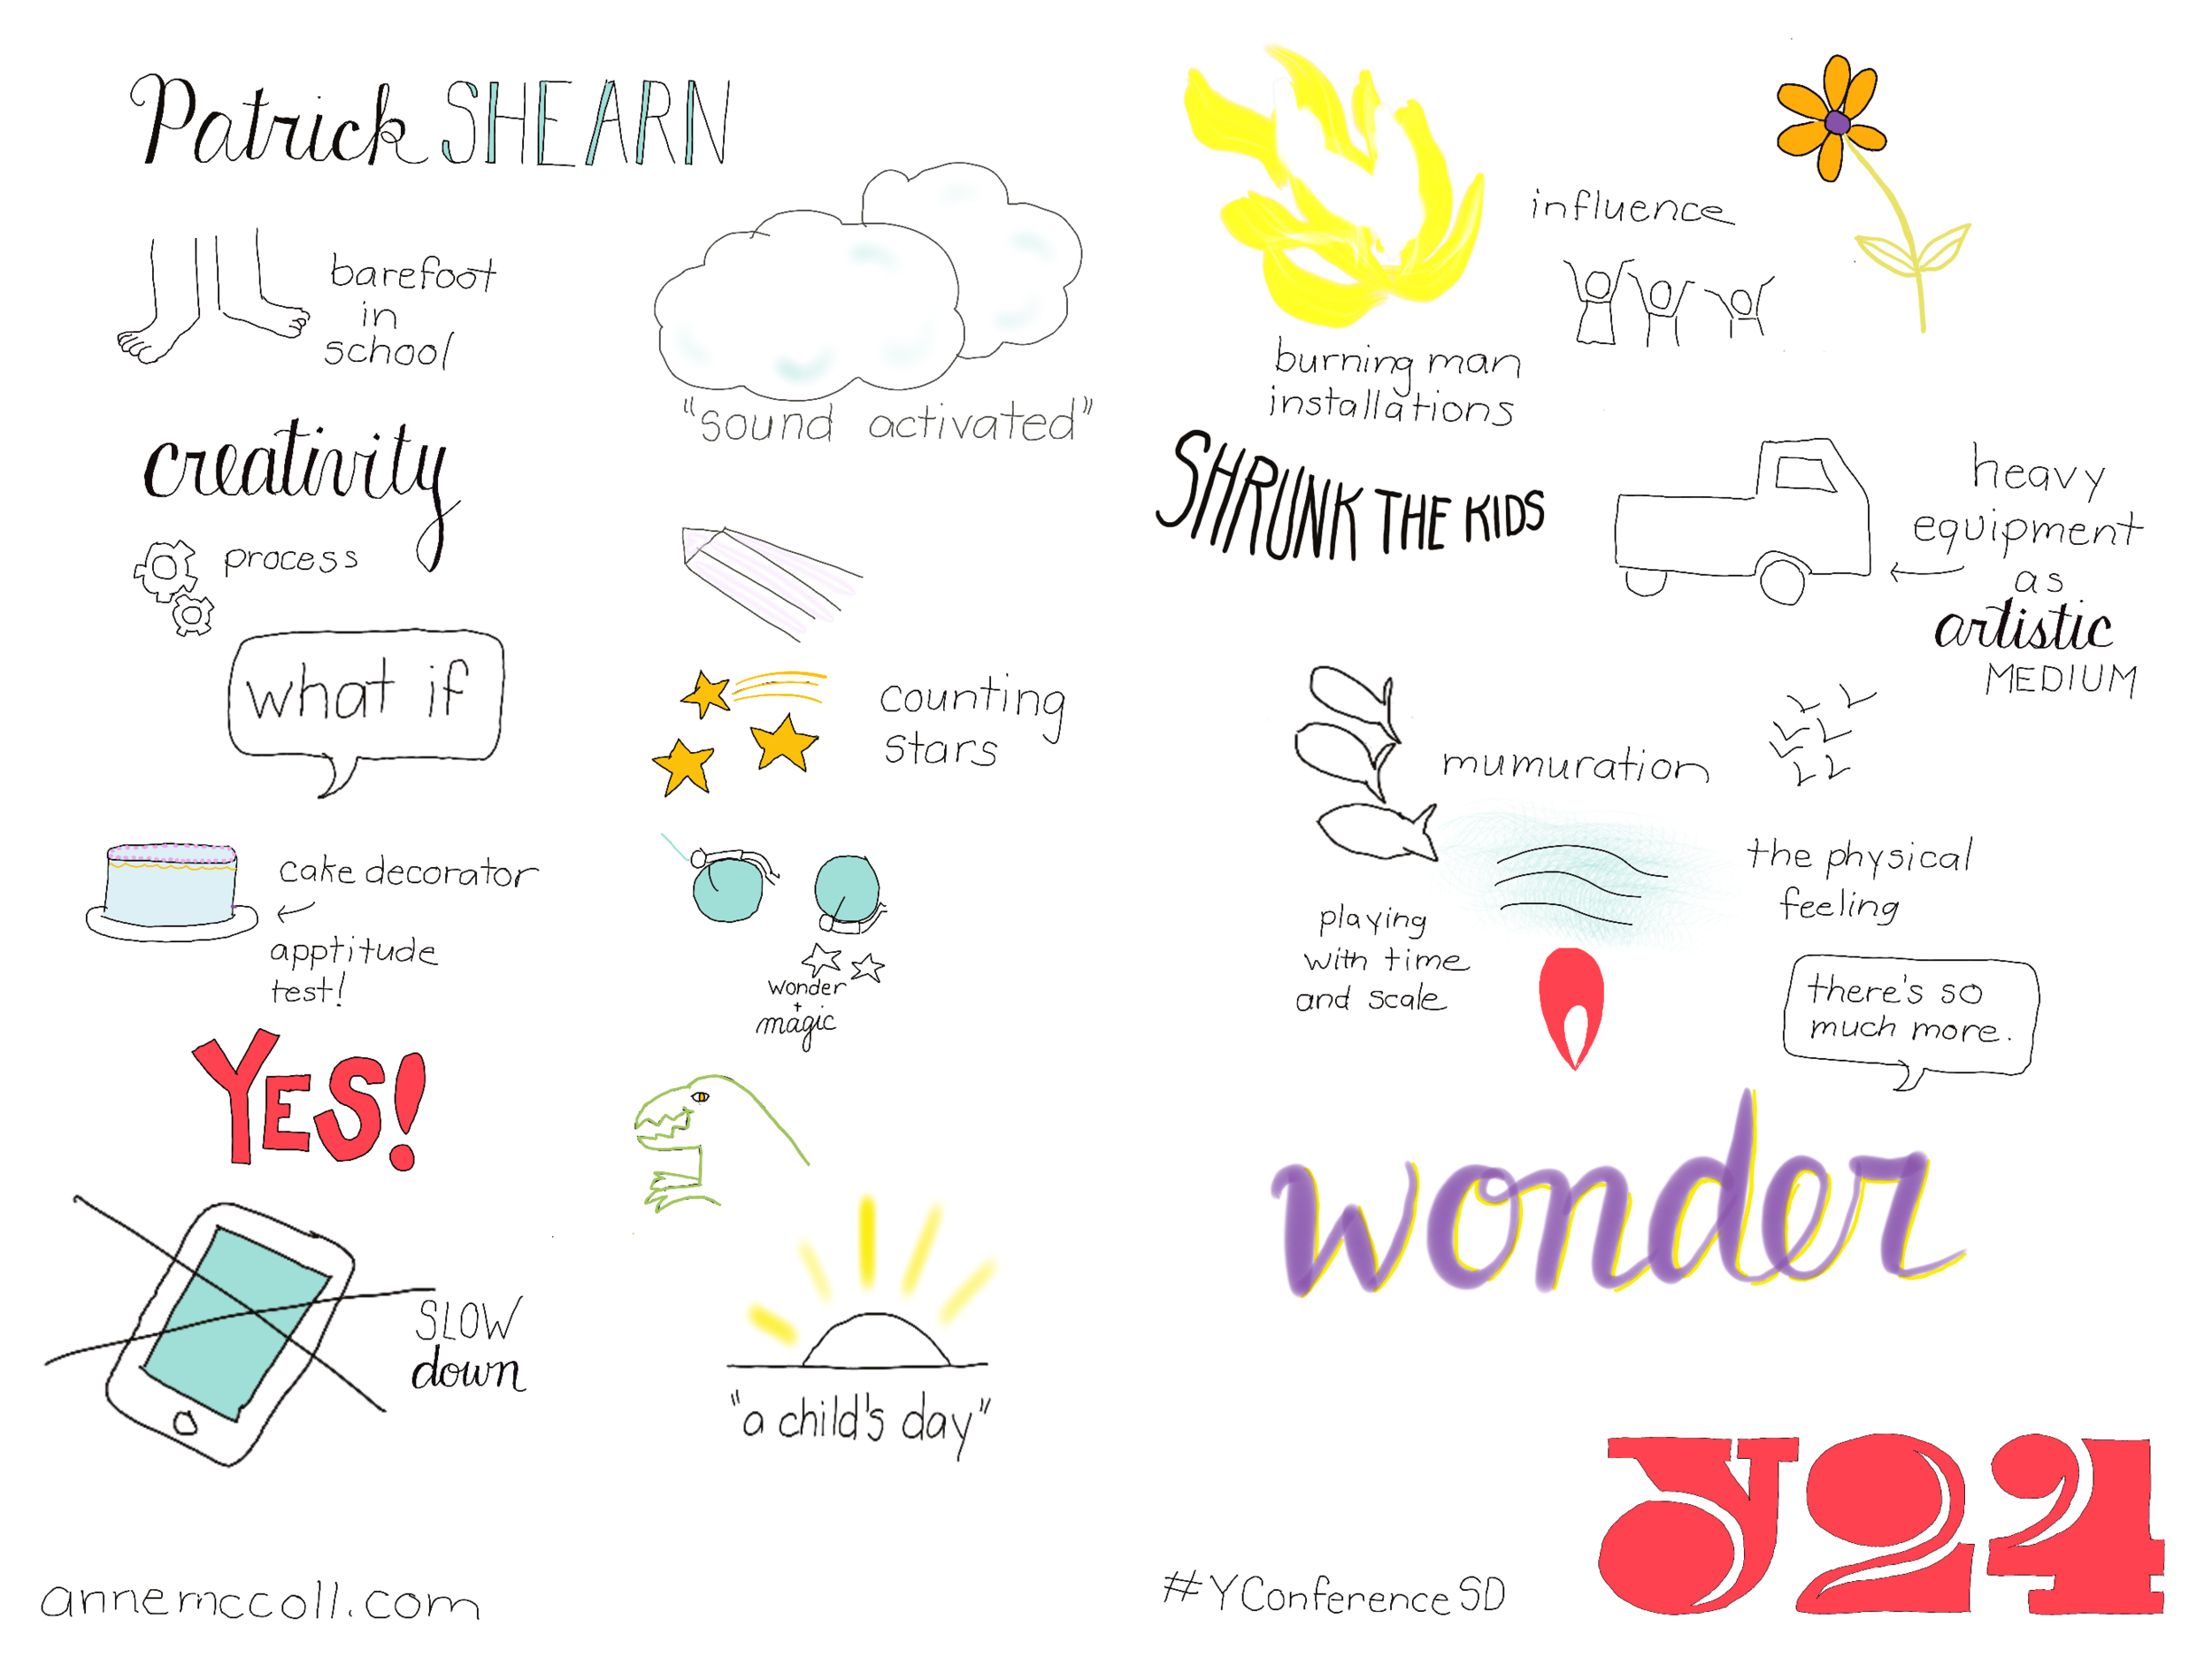 Patrick SHEARN
barefoot
in
school
creativity
process
what if
cake decorator
apptitude
test!
YES!
SLOW
down
"sound activated"
counting
stars
wonder
+
magic
"a child's day"
burning man
installations
influence
SHRUNK THE KIDS
heavy
equipment
as
artistic
MEDIUM
mumuration
the physical
feeling
playing
with time
and scale
there's so
much more.
wonder
annemccoll.com
#YConferenceSD
Y24